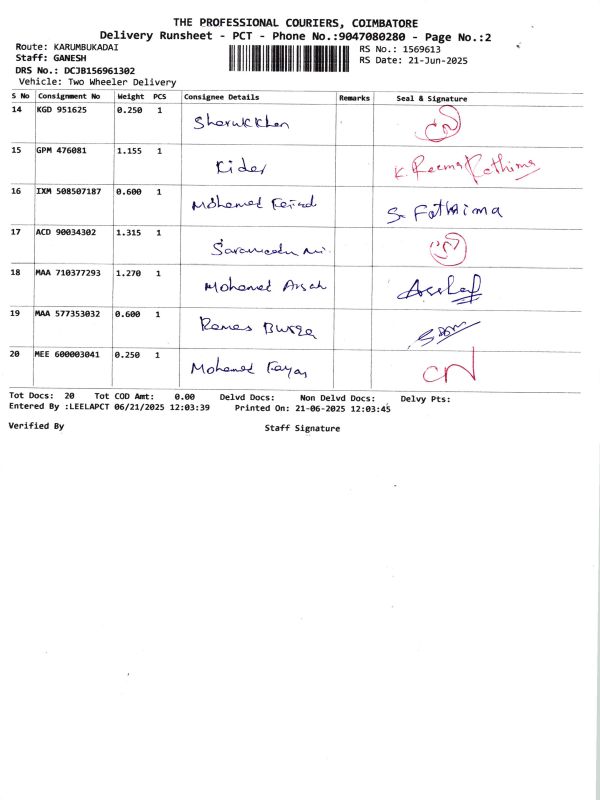 THE PROFESSIONAL COURIERS, COIMBATORE
Delivery Runsheet - PCT - Phone No.:9047080280 - Page No.:2
Route: KARUMBUKADAI
RS No.: 1569613
Staff: GANESH
RS Date: 21-Jun-2025
DRS No.: DCJB156961302
Vehicle: Two Wheeler Delivery
S No Consignment No Weight PCS Consignee Details Remarks Seal & Signature
14 KGD 951625 0.250 1 Sharukkhan
15 GPM 476081 1.155 1 Kider K. Reema Fathima
16 IXM 508507187 0.600 1 Mohamed S. Fathima
17 ACD 90034302 1.315 1
18 MAA 710377293 1.270 1 Mohamed
19 MAA 577353032 0.600 1
20 MEE 600003041 0.250 1 Mohamed
Tot Docs: 20 Tot COD Amt: 0.00 Delvd Docs: Non Delvd Docs: Delvy Pts:
Entered By :LEELAPCT 06/21/2025 12:03:39 Printed On: 21-06-2025 12:03:45
Verified By Staff Signature